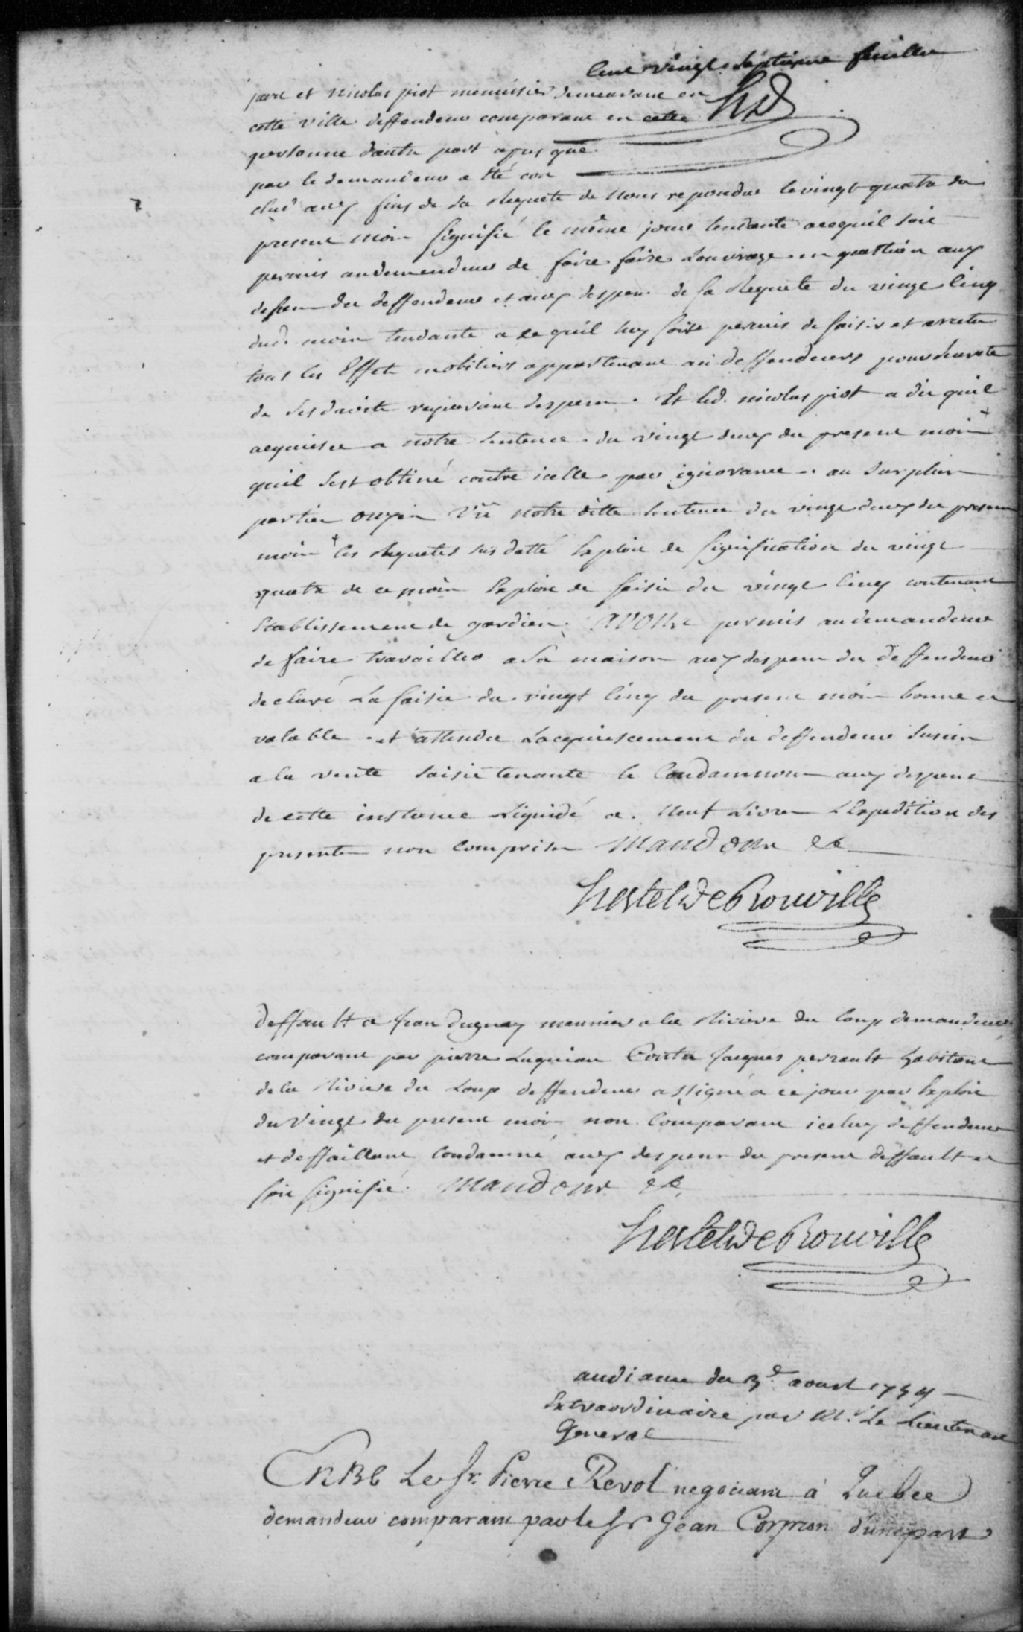 Cent vingt septieme feuillet
part et nicolas piot menuisier demeurant en
cette ville deffendeur comparant en cette
personne dautre part apres que
par le demandeur a été con
clud aux fins de sa Requete de Nous repondue le vingt quatre du
present mois signifié le même jour tendante acequil soit
permis audemendeur de faire faire Louvrage en question aux
depens du deffendeur et aux depens de sa Requete du vingt cinq
dud. mois tendante a ce quil luy soit permis de saisir et arreter
tous les Effets mobiliers appartenant au deffendeurs pour sureté
de ses droits requerant depens. Et led. nicolas piot a dit quil
acquiesce a notre Sentence du vingt deux du present mois
quil sest obtiné contre icelle par ignorance. au surplus
parties ouyes Vû notre ditte Sentence du vingt deux du present
mois les Requetes sus datté Exploit de signification du vingt
quatre de ce mois Exploit de saisie du vingt cinq contenant
Etablissement de gardien. avons permis au demandeur
de faire travailler a la maison aux depens du deffendeur
declaré La saisie du vingt cinq du present mois bonne et
valable et attendu Lacquiescement du deffendeur
a la vente saisie tenante le Condamnons aux depens
de cette instance Liquidé a neuf Livres LExpedition des
presentes non comprise Mandons &c
Hertel de Rouville
deffault a Jean Duguay meunier a la Riviere du Loup demandeur
comparant par pierre Contre Jacques perrault habitant
de la Riviere du Loup deffendeur assigné a ce jour par Exploit
du vingt du present mois non Comparant iceluy deffendeur
et deffaillant Condamné aux depens du present deffault et
soit signifié. Mandons &c.
Hertel de Rouville
audiance du 3e. aoust 1754
Extraordinaire par Mr. Le Lieutenant
General
Entre Le Sr. Pierre Revol negociant à Quebec
demandeur comparant par le Sr Jean Corpron d'une part